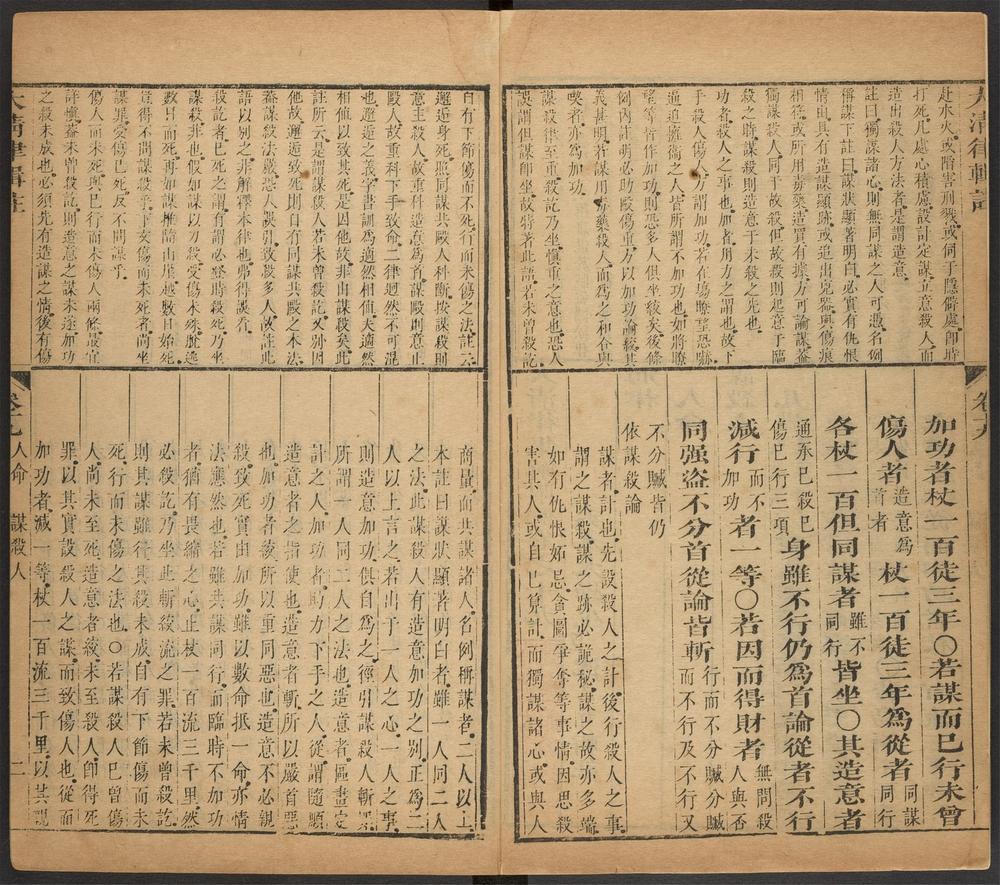 大清律輯註
卷十九
赴水火或階害刑戮或伺于隱僻處即時
打死凡處心積慮設計定謀立意殺人而
造出殺人方法者是謂造意
註曰獨謀諸心則無同謀之人可憑名例
稱謀下註曰謀狀顯著明白必實有仇恨
情由具有造謀顯跡或追出兇器與傷痕
相符或所用毒藥造買有據方可論謀蓋
獨謀殺人同于故殺但故殺則起意于臨
殺之時謀殺則造意于未殺之先也
功者殺人之事也加者用力之謂也故下
手殺人傷人方謂加功若在場瞭望恐嚇
逼迫擁衞之人皆所謂不加功也如將瞭
望等皆作加功則恐多人俱坐絞矣後條
例內註明必助毆傷重方以加功論絞其
義甚明若謀用毒藥殺人而為之和合與
喫者亦為加功
謀殺人罪至重殺訖乃坐慎重之意也恐人
誤謂但謀即坐故特著此語若未曾殺訖
加功者杖一百徒三年〇若謀而已行未曾
傷人者造意為首者杖一百徒三年為從者同謀同行
各杖一百但同謀者雖不同行皆坐〇其造意者
通承巳殺巳傷巳行三項身雖不行仍為首論從者不行
減行而不加功者一等〇若因而得財者無問殺人與否
同强盗不分首從論皆斬行而不分贓分贓而不行及不行又
不分贓皆仍
依謀殺論
謀者計也先設殺人之計後行殺人之事
謂之謀殺謀之跡必詭秘謀之故亦多端
如有仇恨妬忌貪圖爭奪等事情因思殺
害其人或自巳算計而獨謀諸心或與人
自有下節傷而不死行而未傷之法註云
邂逅身死照同謀共毆人科斷按謀殺則
意主殺人故重科造意為首謀毆則意止
毆人故重科下手致命二律迥然不可混
也邂逅之義字書訓為適然相值夫適然
相值以致其死是因他故非由謀殺矣此
註所云是謂謀殺人若未曾殺訖又別因
他故邂逅致死則自有同謀共毆之本法
蓋謀殺法嚴恐人誤引致殺多人故註此
語以別之非解釋本律也弗得誤看
殺訖者已死之謂有謂必登時殺死乃坐
謀殺非也假如謀以刀殺受傷未殊脫逸
數日而死再如謀推墮山崖越數日始死
豈得不問謀殺乎下文傷而未死者尚坐
謀罪受傷已死反不問謀乎
傷人而未死與已行而未傷人兩條最宜
詳慎蓋未曾殺訖則造意之謀未遂加功
之殺未成也必須先有造謀之情後有傷
商量而共謀諸人名例稱謀者二人以上
本註曰謀狀顯著明白者雖一人同二人
之法此謀殺人有造意加功之別正為二
人以上言之若出于一人之心一人之事
則造意加功俱自為之徑引謀殺人斬罪
所謂一人同二人之法也造意者區畫定
計之人加功者助力下手之人從謂隨順
造意者之指使也造意者斬所以嚴首惡
也加功者絞所以重同惡也造意不必親
殺致死實由加功雖以數命抵一命亦情
法應然也若雖共謀同行而臨時不加功
者猶有畏縮之心止杖一百流三千里然
必殺訖乃坐此斬絞流之罪若未曾殺訖
則其謀雖行其殺未成自有下節傷而未
死行而未傷之法也〇若謀殺人巳曾傷
人尚未至死造意者絞未至殺人即得死
罪以其實設殺人之謀而致傷人也從而
加功者減一等杖一百流三千里以其謀
大清律輯註
卷十九 人命 謀殺人 二